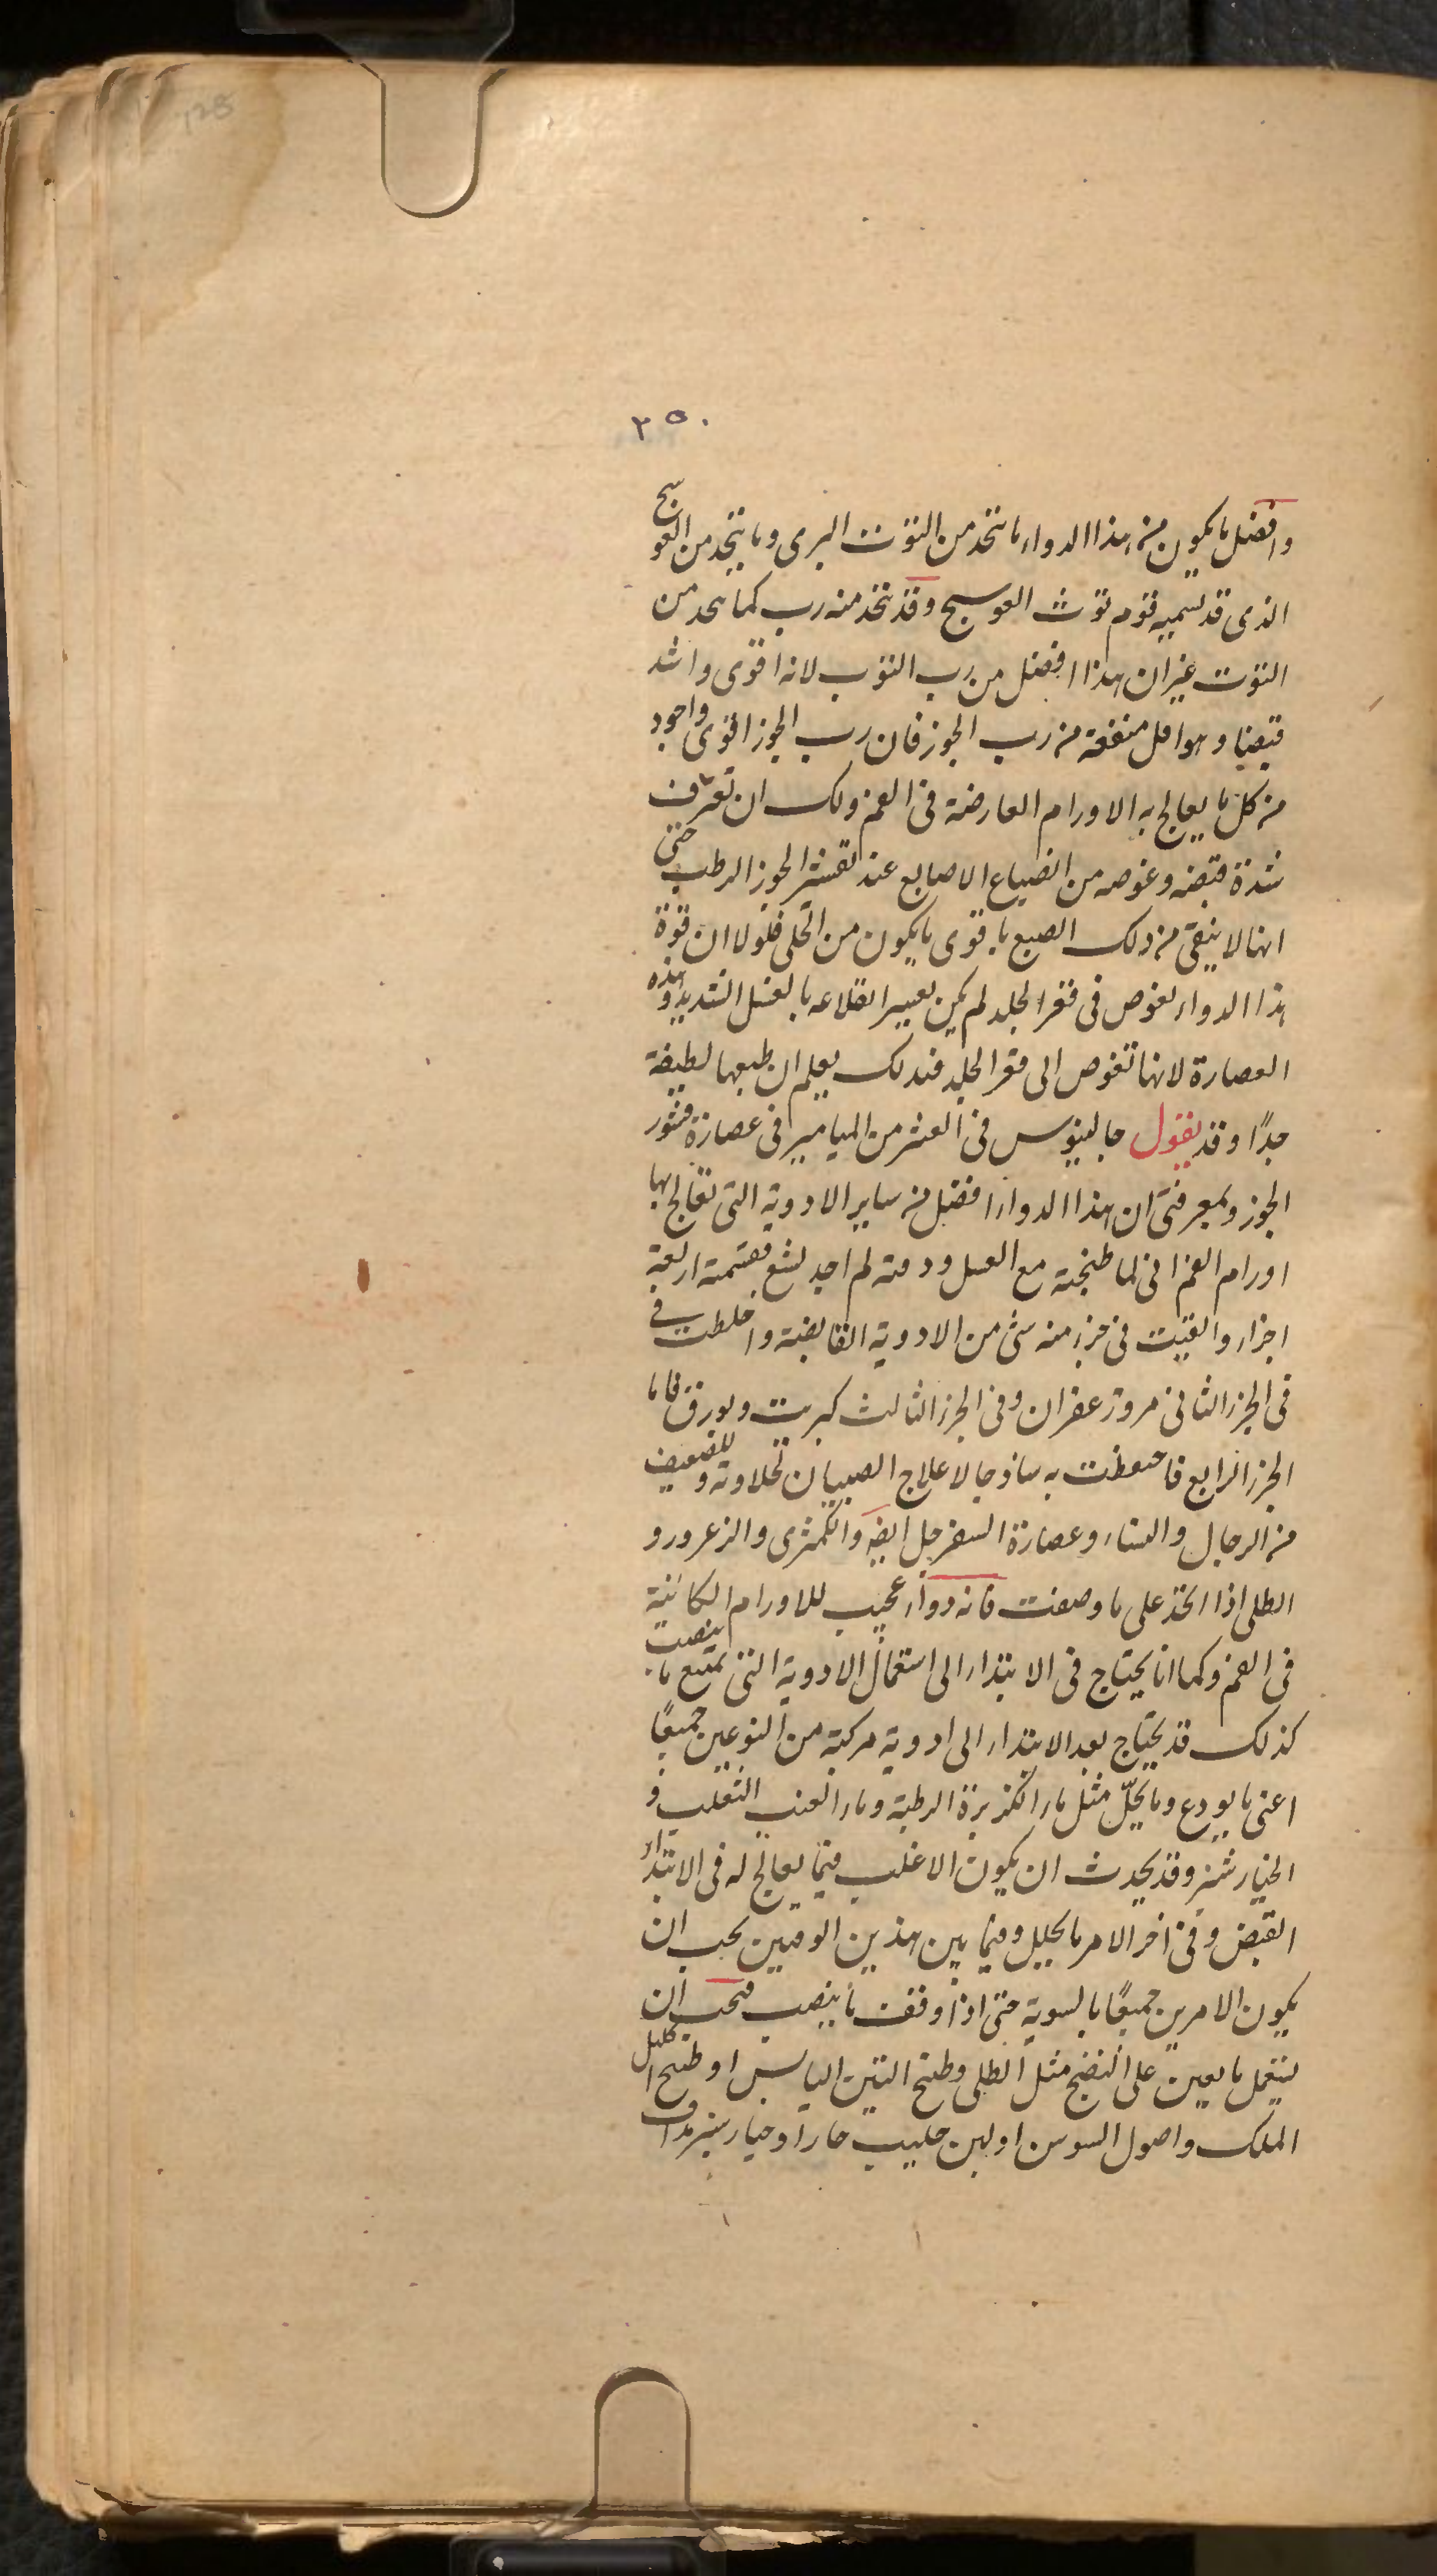 ٢٥٠
وافضل ما يكون من هذا الدواء ما يتخذ من التوت البرى وما يتخذ من العوسج
الذى قد تسميه قوم توث العوسج وقد يتخذ منه رب كما يتخذ من
التوت غير ان هذا افضل من رب التوت لانه اقوى واشد
قبضا وهو اقل منفعة من رب الجوز فان رب الجوز اقوى واجود
من كل ما يعالج به الاورام العارضة فى الفم ولك ان تعرف
شدة قبضه وغوصه من انصباع الاصابع عند تقشر الجوز الرطب حتى
انها لا ينقى من ذلك الصبع با قوى ما يكون من الجلى فلولا ان قوة
هذا الدواء يغوص فى قعر الجلد لم يكن يعسر انقلاعه بالغسل الشديد وهذه
العصارة لانها تغوص الى قعر الجلد فبذلك يعلم ان طبعها لطيفة
جدًا وقد يقول جالينوس فى العشر من الميامير فى عصارة قشور
الجوز وبمعرفتى ان هذا الدواء افضل من ساير الادوية التى تعالج بها
اورام الفم انى لما طبخته مع العسل ودفته لم اجد بشع فقسمته اربعة
اجزاء والقيت فى جزء منه شئ من الادوية القابضة واخلطت فى
فى الجزء الثانى مر وزعفران وفى الجزء الثالث كبريت وبورق فاما
الجزء الرابع فاحتفظت به ساذجا لا علاج الصبيان لحلاوته وللضعيف
من الرجال والنساء وعصارة السفرجل ايضه والكمثرى والزعرور و
الطلى اذا اتخذ على ما وصفت فانه دواء عجيب للاورام الكائنة
فى الفم وكما انا يحتاج فى الابتداء الى استعمال الادوية التى تمنع ما ينصب
كذلك قد يحتاج بعد الابتداء الى ادوية مركبة من النوعين جميعًا
اعنى ما يودع وما يحلّل مثل ماء الكزبرة الرطبة وماء العنب الثعلب و
الخيار شنبر وقد يحدث ان يكون الاغلب فيما يعالج له فى الابتداء
القبض وفى اخر الامر ما يحليل وفيما بين هذين الوقتين يجب ان
يكون الامرين جميعًا بالسوية حتى اذا وقف ما ينصب فيجب ان
يستعمل ما يعين على النضج مثل الطلى وطبخ التين اليابس او طبخ اكليل
الملك واصول السوسن او لبن حليب حارا وخيار شنبر